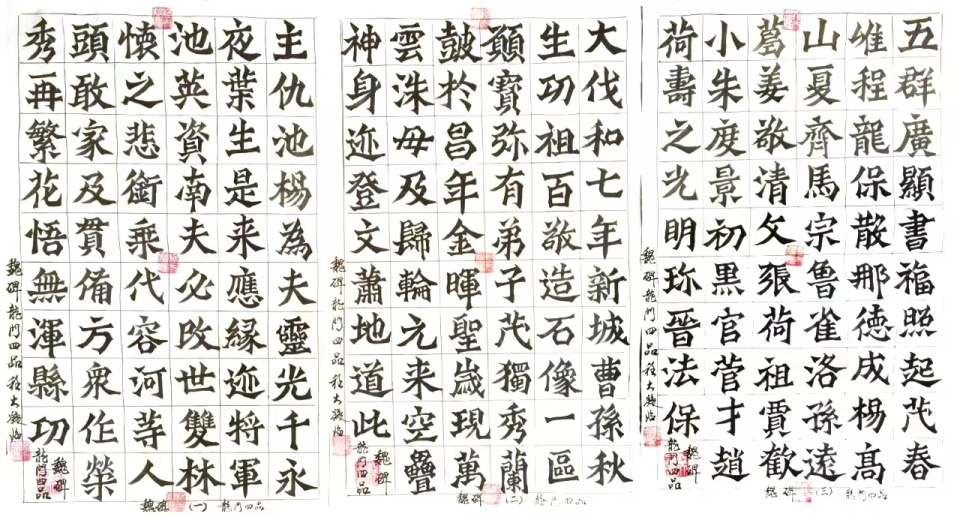 主仇池楊為夫靈光千永
夜葉生是来應緣迹將軍
池英資南夫必改世雙林
懷之悲銜乘代容河等人
頭敢家及貫備方衆作榮
秀再繁花悟無渾縣功
魏碑
龍門四品
魏碑龍門四品
魏碑 (一) 龍門四品
大伐和七年新城曹孫秋
生功祖百敬造石像一區
顥寶弥有弟子茂獨秀蘭
皷於昌年金暉聖歲現萬
雲洙毋及歸輪元来空疊
神身迹登文蕭地道此
魏碑
龍門四品
魏碑龍門四品
魏碑 (二) 龍門四品
五群廣顯書福照起茂春
唯程龍保散那德成楊高
山夏齊馬宗魯雀洛孫遠
葛姜敬清父張荷祖賈歡
小朱度景初黑官菅才趙
荷壽之光明珎晉法保
魏碑
龍門四品
魏碑龍門四品
魏碑 (三) 龍門四品